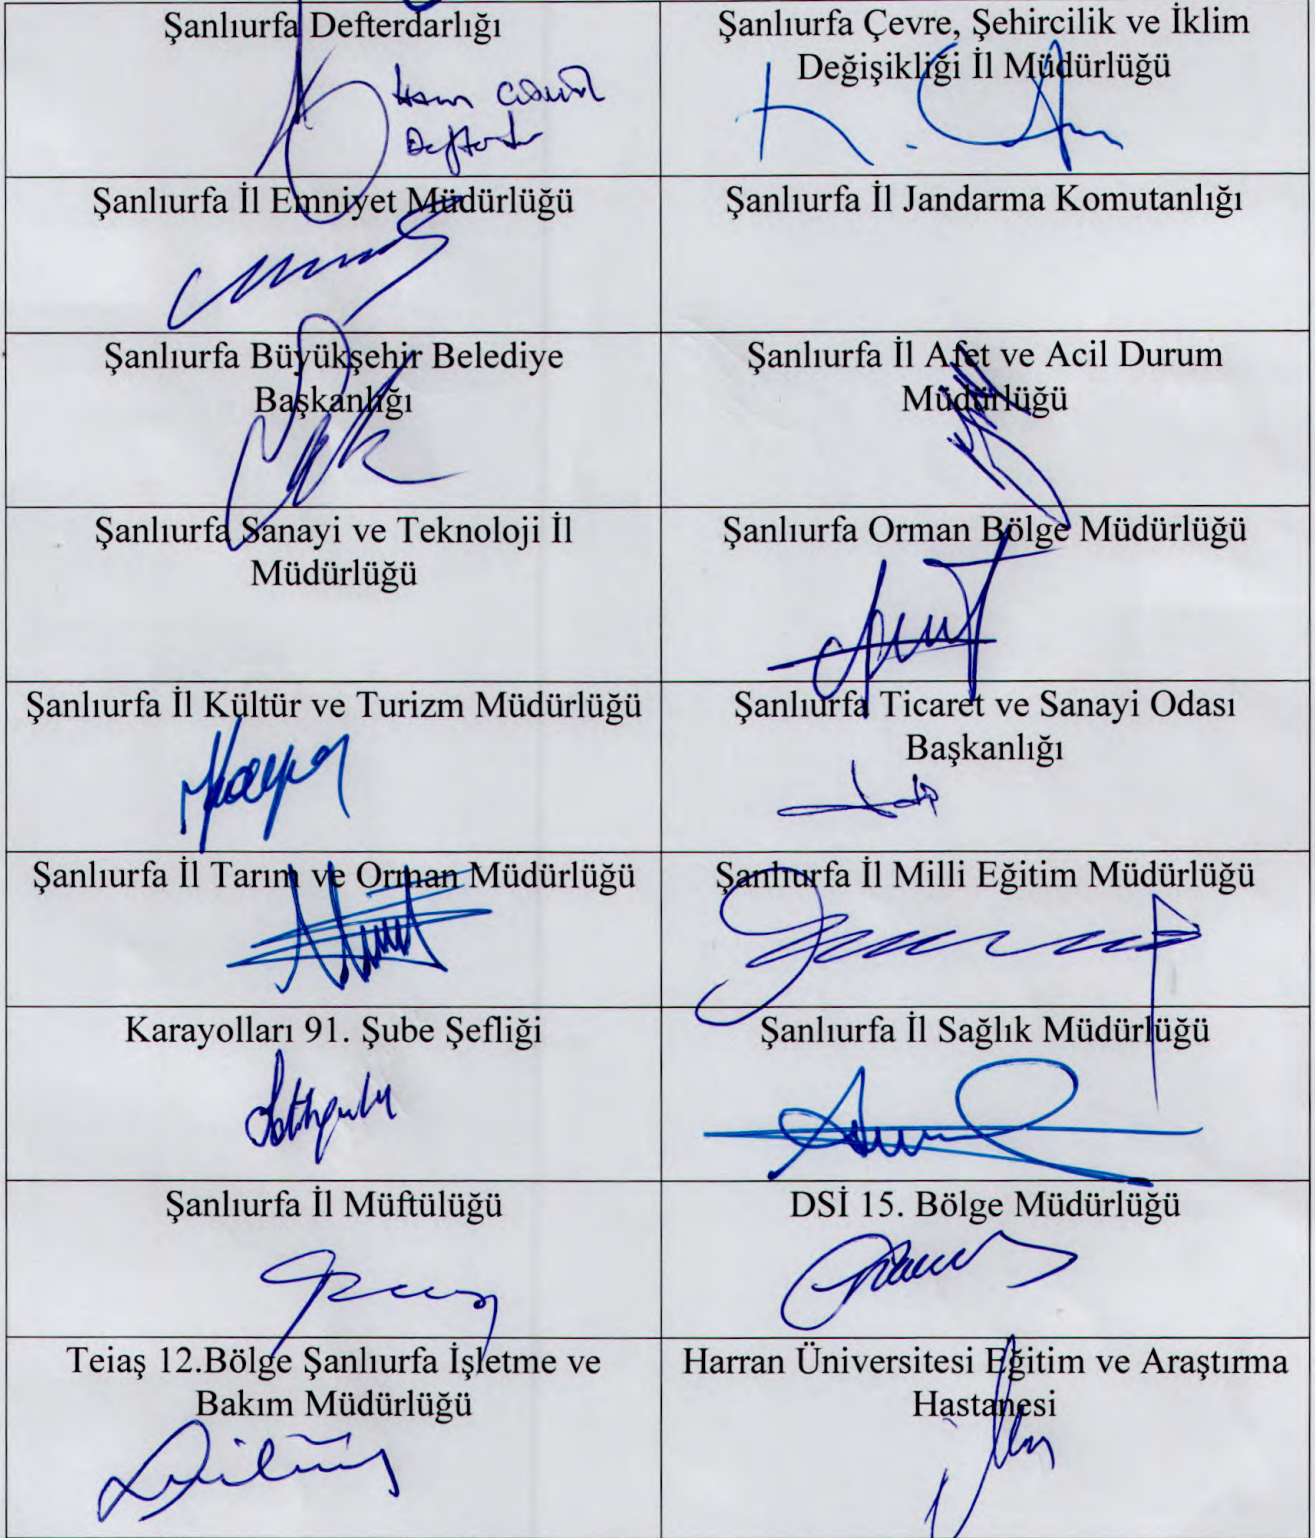 Şanlıurfa Defterdarlığı
Şanlıurfa Çevre, Şehircilik ve İklim
Değişikliği İl Müdürlüğü
Şanlıurfa İl Emniyet Müdürlüğü
Şanlıurfa İl Jandarma Komutanlığı
Şanlıurfa Büyükşehir Belediye
Başkanlığı
Şanlıurfa İl Afet ve Acil Durum
Müdürlüğü
Şanlıurfa Sanayi ve Teknoloji İl
Müdürlüğü
Şanlıurfa Orman Bölge Müdürlüğü
Şanlıurfa İl Kültür ve Turizm Müdürlüğü
Şanlıurfa Ticaret ve Sanayi Odası
Başkanlığı
Şanlıurfa İl Tarım ve Orman Müdürlüğü
Şanlıurfa İl Milli Eğitim Müdürlüğü
Karayolları 91. Şube Şefliği
Şanlıurfa İl Sağlık Müdürlüğü
Şanlıurfa İl Müftülüğü
DSİ 15. Bölge Müdürlüğü
Teiaş 12.Bölge Şanlıurfa İşletme ve
Bakım Müdürlüğü
Harran Üniversitesi Eğitim ve Araştırma
Hastanesi